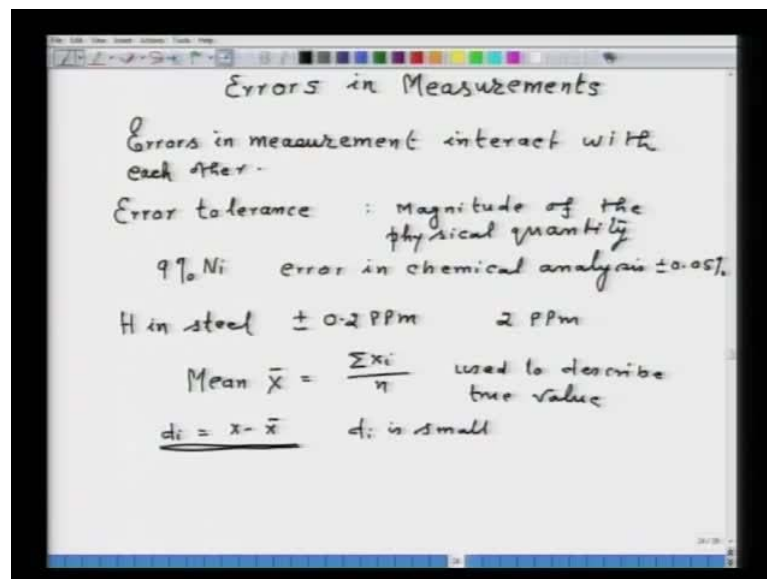 Errors in Measurements
Errors in measurement interact with
each other.
Error tolerance : Magnitude of the
physical quantity
9% Ni error in chemical analysis ±0.05%
H in steel ± 0.2 PPm 2 PPm
Mean x̄ = Σxi / n used to describe
true value
di = x - x̄ di is small